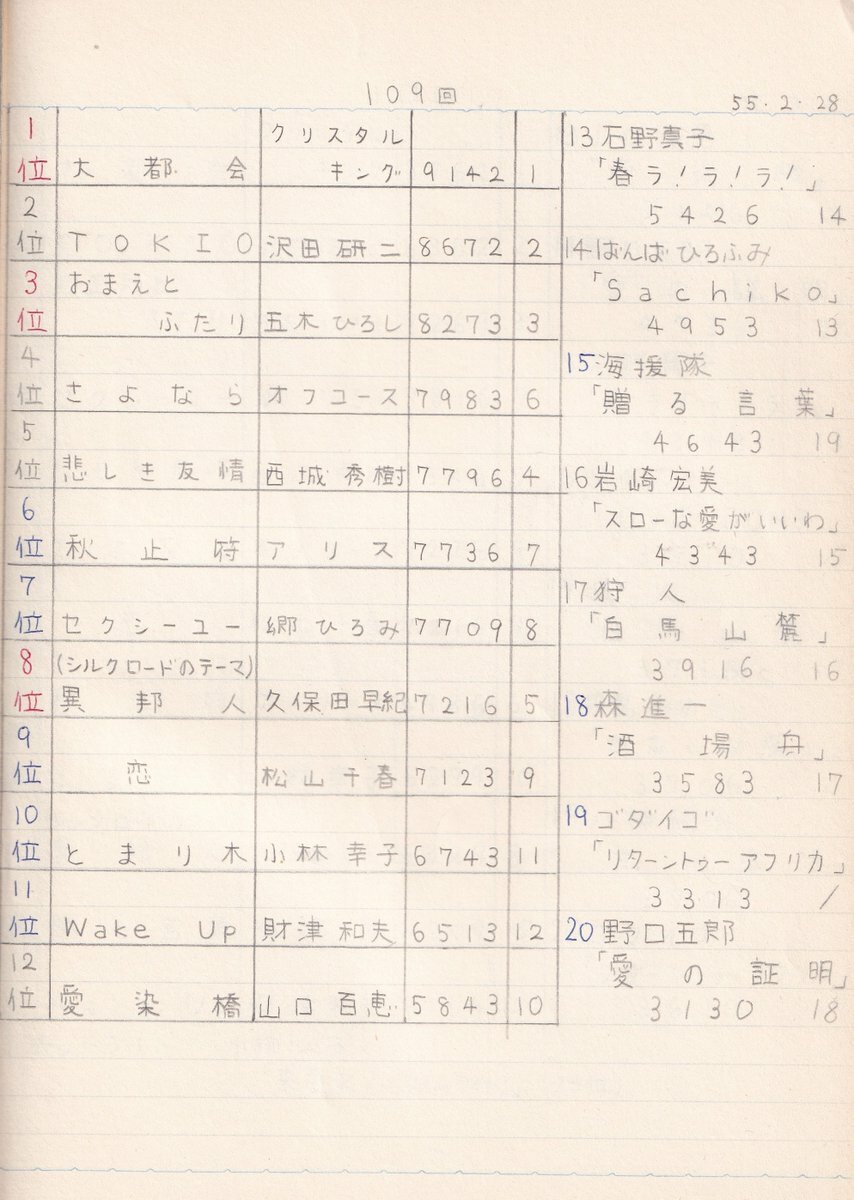 109回
55・2・28
1位 大都会 クリスタルキング 9142 1
2位 TOKIO 沢田研二 8672 2
3位 おまえとふたり 五木ひろし 8273 3
4位 さよなら オフコース 7983 6
5位 悲しき友情 西城秀樹 7796 4
6位 秋止符 アリス 7736 7
7位 セクシーユー 郷ひろみ 7709 8
8位 (シルクロードのテーマ) 異邦人 久保田早紀 7216 5
9位 恋 松山千春 7123 9
10位 とまり木 小林幸子 6743 11
11位 Wake Up 財津和夫 6513 12
12位 愛染橋 山口百恵 5843 10
13 石野真子
「春ラ!ラ!ラ!」
5426 14
14 ばんばひろふみ
「Sachiko」
4953 13
15 海援隊
「贈る言葉」
4643 19
16 岩崎宏美
「スローな愛がいいわ」
4343 15
17 狩人
「白馬山麓」
3916 16
18 森進一
「酒場舟」
3583 17
19 ゴダイゴ
「リターントゥーアフリカ」
3313 /
20 野口五郎
「愛の証明」
3130 18